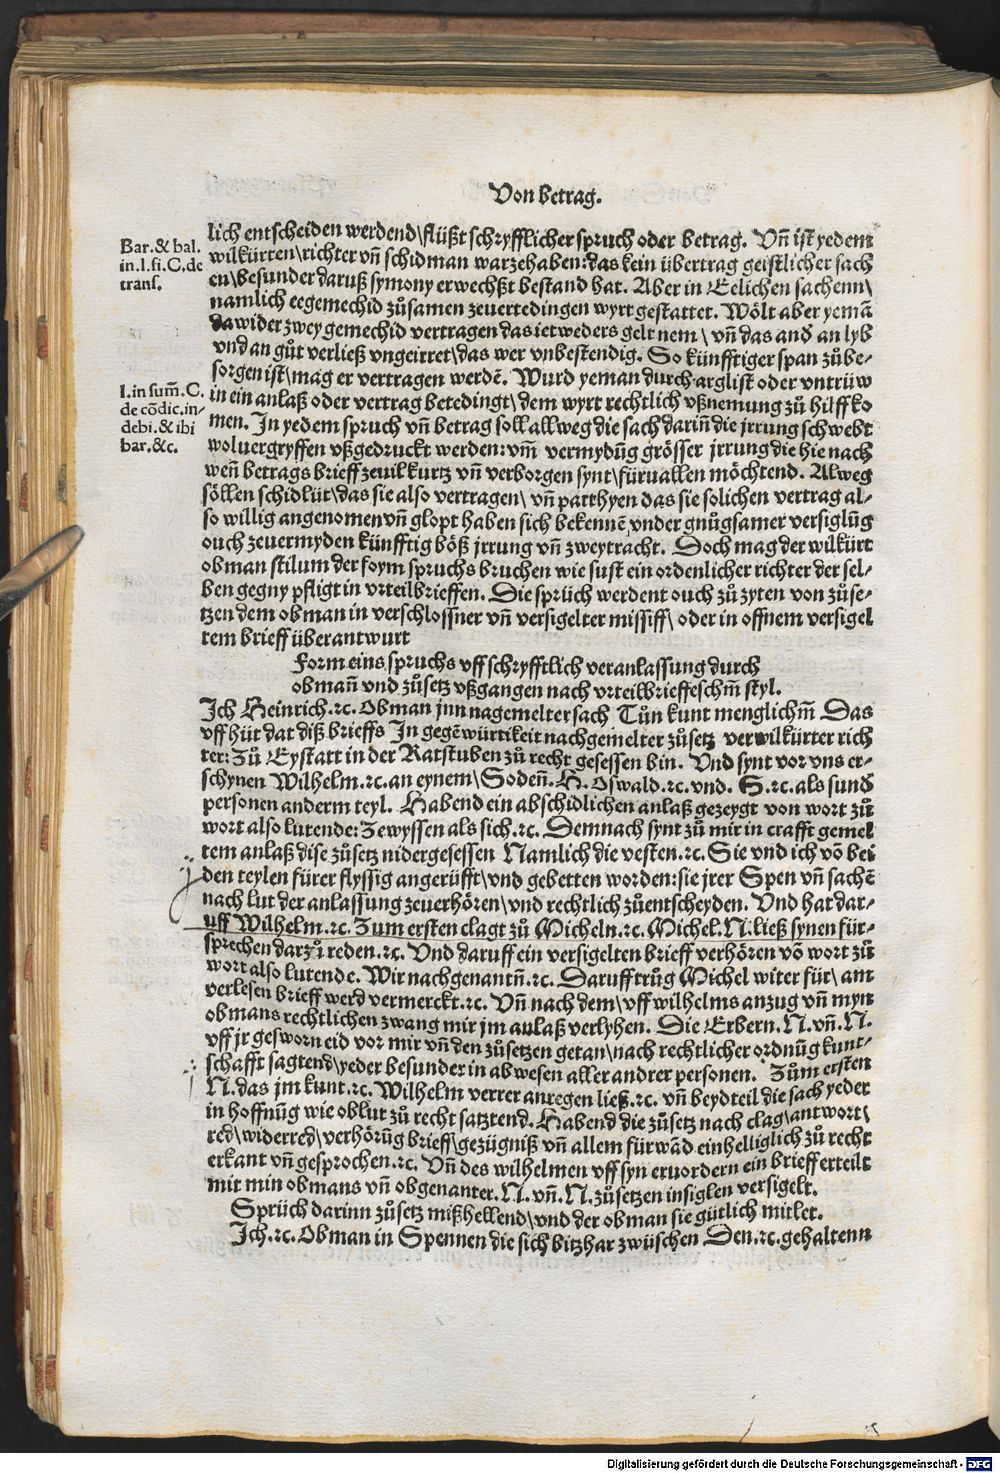 Von betrag.
Bar. & bal.
in. l. fi. C. de
trans.
l. in sum̄. C.
de cōdic. in-
debi. & ibi
bar. &c.
lich entscheiden werdend\ flüßt schryfflicher spruch oder betrag. Vñ ist yedem
wilkürten\ richter vñ schidman war zehaben: das kein übertrag geistlicher sach
en\ besunder daruß symony erwechßt bestand hat. Aber in Eelichen sachenn\
namlich eegemechid zůsamen zeuertedingen wyrt gestattet. Wölt aber yemā
da wider zwey gemechid vertragen das ietweders gelt nem\ vñ das and̄ an lyb
vnd an gůt verließ vngeirret\ das wer vnbestendig. So künfftiger span zůbe-
sorgen ist\ mag er vertragen werdē. Wurd yeman durch arglist oder vntrüw
in ein anlaß oder vertrag betedingt\ dem wyrt rechtlich vßnemung zů hilff ko
men. In yedem spruch vñ betrag soll allweg die sach dariñ die jrrung schwebt
wol vergryffen vßgedruckt werden: vm̄ vermydūg grösser jrrung die hie nach
weñ betrags brieff zeuil kurtz vñ verborgen synt\ füruallen möchtend. Alweg
söllen schidlüt\ das sie also vertragen\ vñ parthyen das sie solichen vertrag al-
so willig angenomen vñ glopt haben sich bekennē vnder gnůgsamer versiglūg
ouch zeuermyden künfftig böß jrrung vñ zweytracht. Doch mag der wilkürt
obman stilum der foym spruchs bruchen wie sust ein ordenlicher richter der sel-
ben gegny pfligt in vrteilbrieffen. Die sprüch werdent ouch zů zyten von zůse-
tzen dem obman in verschlossner vñ versigelter missiff\ oder in offnem versigel
tem brieff überantwurt
Form eins spruchs vff schryfftlich veranlassung durch
obmañ vnd zůsetz vßgangen nach vrteilbrieffeschm̄ styl.
Ich Heinrich. ꝛc. Obman jnn nagemelter sach Tůn kunt menglichm̄ Das
vff hüt dat diß brieffs In gegēwürtikeit nachgemelter zůsetz verwilkürter rich
ter: Zů Eystatt in der Ratstuben zů recht gesessen bin. Vnd synt vor vns er-
schynen Wilhelm. ꝛc. an eynem\ Sodeñ. H. Oswald. ꝛc. vnd. S. ꝛc. als sund̄
personen anderm teyl. Habend ein abschidlichen anlaß gezeygt von wort zů
wort also lutende: Ze wyssen als sich. ꝛc. Demnach synt zů mir in crafft gemel
tem anlaß dise zůsetz nidergesessen Namlich die vesten. ꝛc. Sie vnd ich vō bei
den teylen fürer flyssig angerüfft\ vnd gebetten worden: sie jrer Spen vñ sachē
nach lut der anlassung zeuerhören\ vnd rechtlich zůentscheyden. Vnd hat dar-
uff Wilhelm. ꝛc. Zum ersten clagt zů Micheln. ꝛc. Michel. N. ließ synen für-
sprechen darzů reden. ꝛc. Vnd daruff ein versigelten brieff verhören vō wort zů
wort also lutende. Wir nachgenantñ. ꝛc. Daruff trůg Michel witer für\ am
verlesen brieff werd vermerckt. ꝛc. Vñ nach dem\ vff wilhelms anzug vñ myn
obmans rechtlichen zwang mir jm anlaß verlyhen. Die Erbern. N. vñ. N.
vff jr gesworn eid vor mir vñ den zůsetzen getan\ nach rechtlicher ordnūg kunt-
schafft sagtend\ yeder besunder in abwesen aller andrer personen. Zům ersten
N. das jm kunt. ꝛc. Wilhelm verrer anregen ließ. ꝛc. vñ beydteil die sach yeder
in hoffnūg wie oblut zů recht satztend. Habend die zůsetz nach clag\ antwort\
red\ widerred\ verhörūg brieff\ gezügniß vñ allem fürwād einhelliglich zů recht
erkant vñ gesprochen. ꝛc. Vñ des wilhelmen vff syn eruordern ein brieff erteilt
mit min obmans vñ obgenanter. N. vñ. N. zůsetzen insiglen versigelt.
Sprüch darinn zůsetz mißhellend\ vnd der obman sie gütlich mitlet.
Ich. ꝛc. Obman in Spennen die sich bitzhar zwüschen Den. ꝛc. gehaltenn
Digitalisierung gefördert durch die Deutsche Forschungsgemeinschaft - DFG